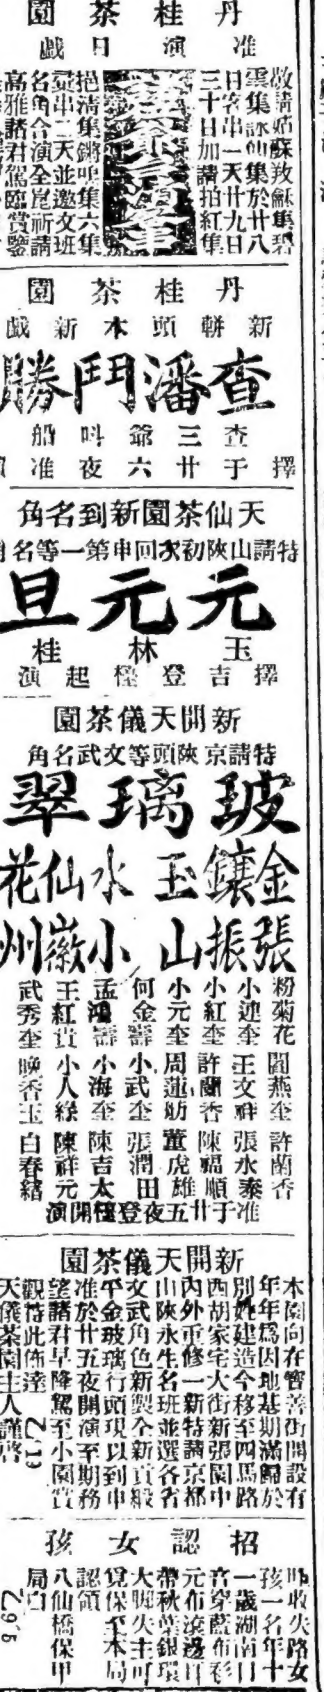 丹桂茶園
准演日戲
敬請姑蘇
雲集詠仙集於廿八
日客串一天廿九日
三十日加請拍紅集
挹清集鏘鳴集六集
彙串二天並邀文班
名角合演全崑祈請
高雅諸君駕臨賞鑒
丹桂茶園
新新頭本新戲
查潘鬥勝
查三爺叫船
擇于廿六夜准
天仙茶園新到名角
特請山陝初次回申第一等名角
元元旦
玉林桂
擇吉登檯起演
新開天儀茶園
特請京陝頭等文武名角
玻璃翠
金鑲玉
水仙花
張振山
小徽州
粉菊花
小連奎
小紅奎
小元奎
何金壽
孟鴻壽
王紅貴
武秀奎
閻燕奎
王文祥
許蘭香
周蓮舫
小武奎
小海奎
小人綠
晚香玉
許蘭香
張水泰
陳福順
董虎雄
張潤田
陳吉太
陳祥元
白春緒
准于廿五夜登檯開演
新開天儀茶園
本園向在寶善街開設有
年年爲因地基期滿歸於
別姓建造今移至四馬路
西胡家宅大街新張園中
內外重修一新特請京都
山陝永生名班並選各省
文武角色新製全新貢緞
平金玻璃行頭現以到申
准於廿五夜開演至期務
望諸君早降駕至小園賞
觀特此佈達
天儀茶園主人謹啓
招認女孩
昨收失路女
孩一名年十
一歲湖南口
音穿藍布衫
元布滾邊耳
帶秋葉銀環
大脚失主可
覓保至本局
認領
八仙橋保甲
局白